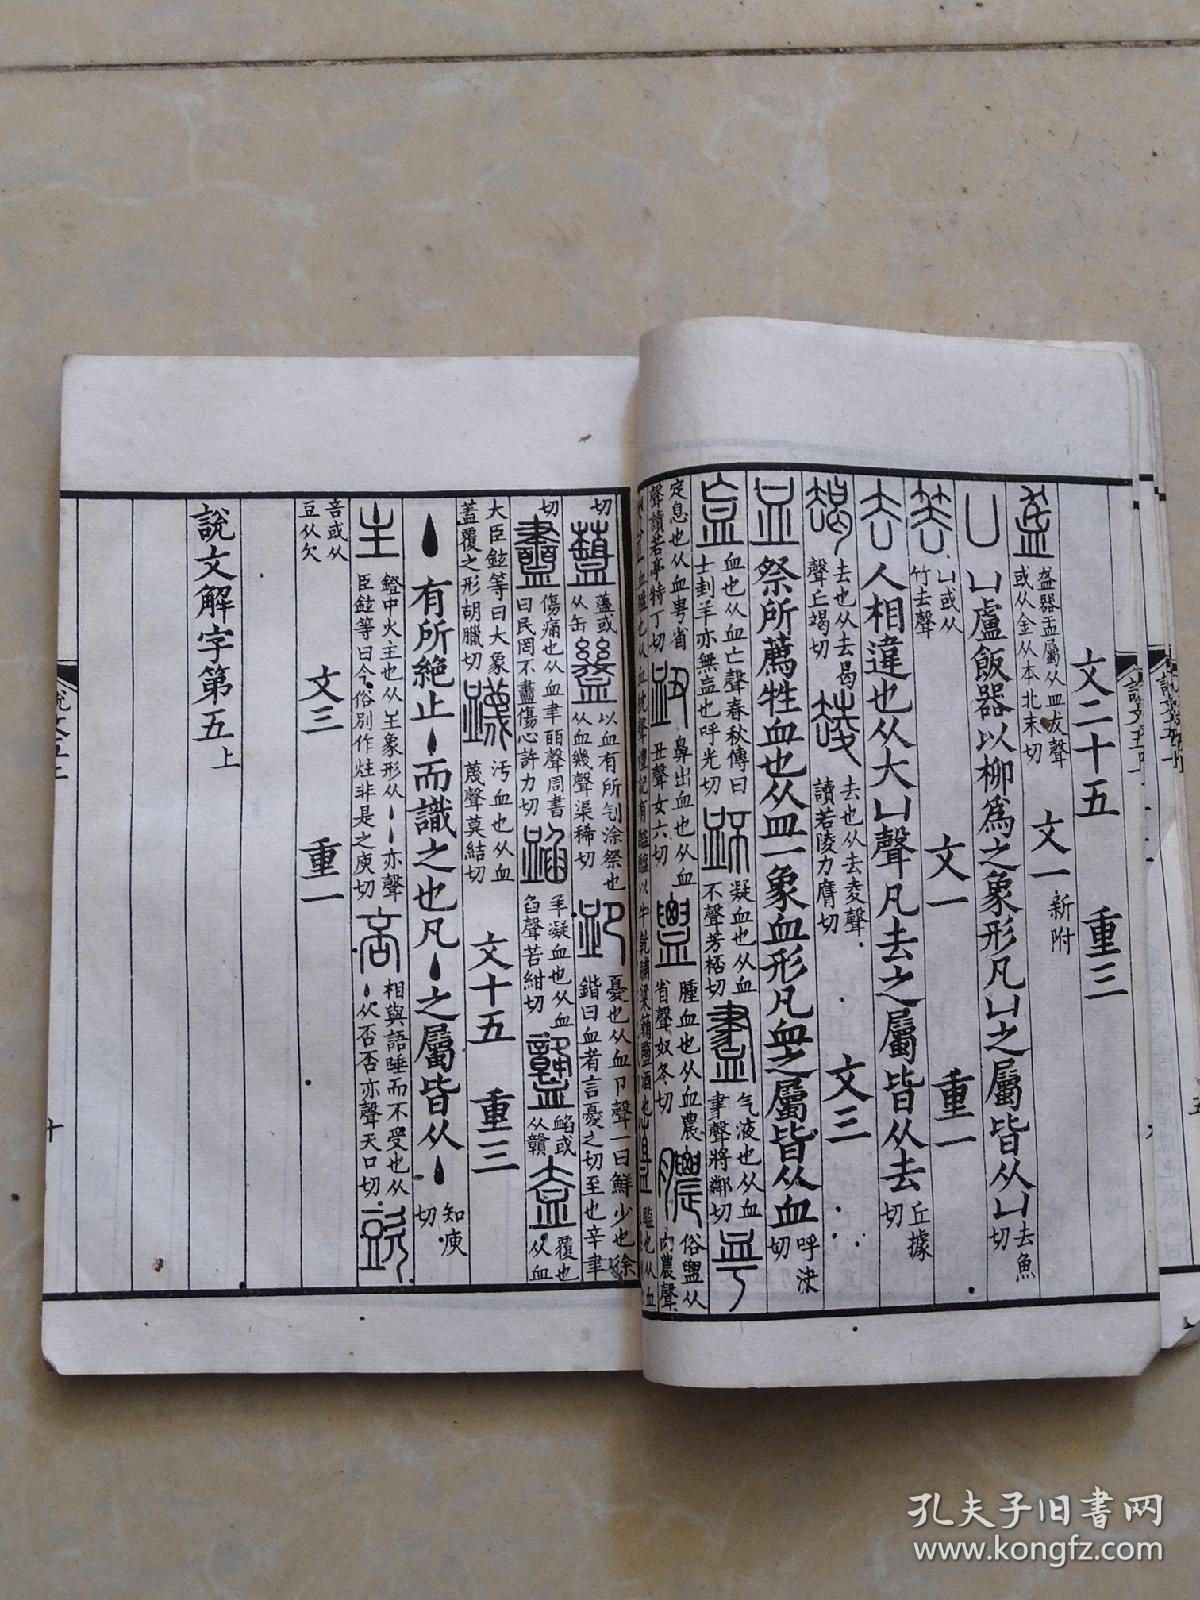 文二十五 重三
盋 盋器盂屬从皿犮聲
或从金从本北末切 文一 新附
凵 凵盧飯器以柳爲之象形凡凵之屬皆从凵 去魚
切
凵或从
竹去聲 文一 重一
去 人相違也从大凵聲凡去之屬皆从去 丘據
切
朅 去也从去曷
聲丘竭切 去也从去夌聲
讀若陵力膺切 文三
血 祭所薦牲血也从皿一象血形凡血之屬皆从血 呼決
切
衁 血也从血亡聲春秋傳曰
士刲羊亦無衁也呼光切 衃 凝血也从血
不聲芳桮切 𧗁 气液也从血
𦘔聲將鄰切
定息也从血甹省
聲讀若亭特丁切 衄 鼻出血也从血
丑聲女六切 腫血也从血農
省聲奴冬切 膿 俗盥从
肉農聲
憂也从血卩聲一曰鮮少也徐
鍇曰血者言憂之切至也辛聿
切 薀或
从缶 以血有所刉涂祭也
从血幾聲渠稀切 卹
切 衋 傷痛也从血聿皕聲周書
曰民罔不衋傷心許力切 羊凝血也从血
臽聲苦紺切 衉或
从贛 覆也
从血
大臣鉉等曰大象
蓋覆之形胡臘切 衊 汚血也从血
蔑聲莫結切 文十五 重三
丶 有所絶止丶而識之也凡丶之屬皆从丶 知庾
切
主 鐙中火主也从𡈼象形从丶丶亦聲
臣鉉等曰今俗別作炷非是之庾切 相與語唾而不受也从
丶从否否亦聲天口切
音或从
豆从欠 文三 重一
說文解字第五上
十
孔夫子旧书网
www.kongfz.com